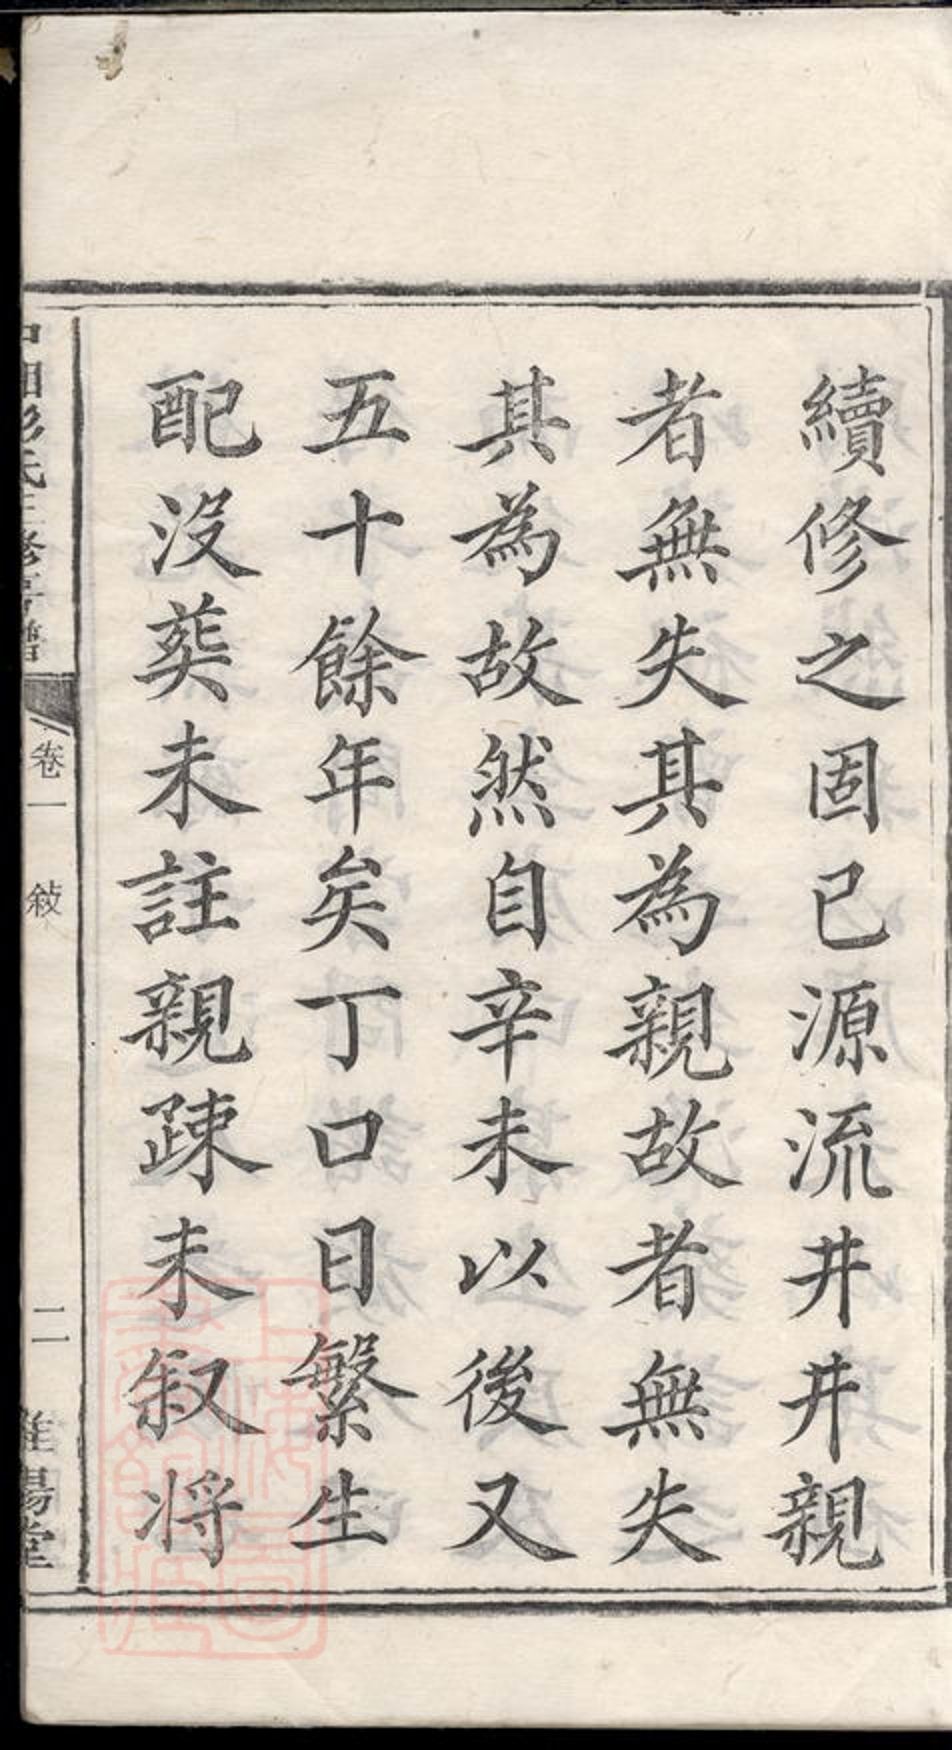 續修之固已源流井井親
者無失其為親故者無失
其為故然自辛未以後又
五十餘年矣丁口日繁生
配沒葬未註親疎未叙将
卷一 敍 二